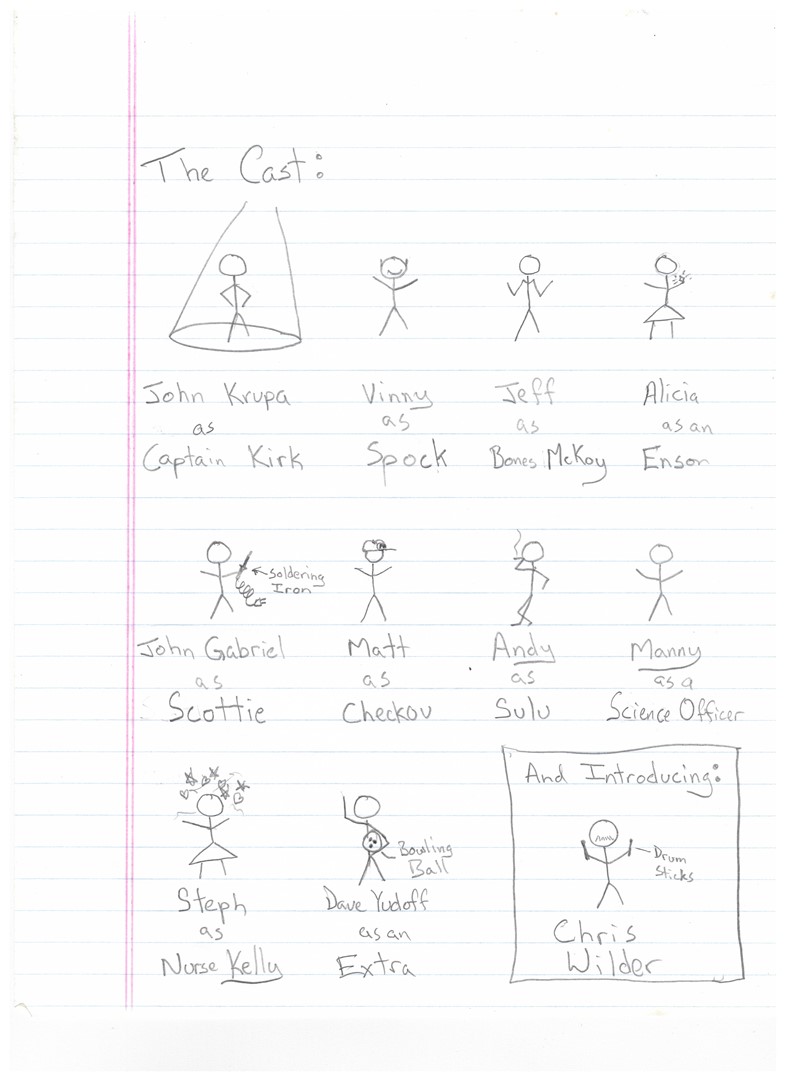 The Cast:
John Krupa
as
Captain Kirk
Vinny
as
Spock
Jeff
as
Bones McKoy
Alicia
as an
Enson
Soldering
Iron
John Gabriel
as
Scottie
Matt
as
Checkov
Andy
as
Sulu
Manny
as a
Science Officer
Steph
as
Nurse Kelly
Bowling
Ball
Dave Yudoff
as an
Extra
And Introducing:
Drum
Sticks
Chris
Wilder